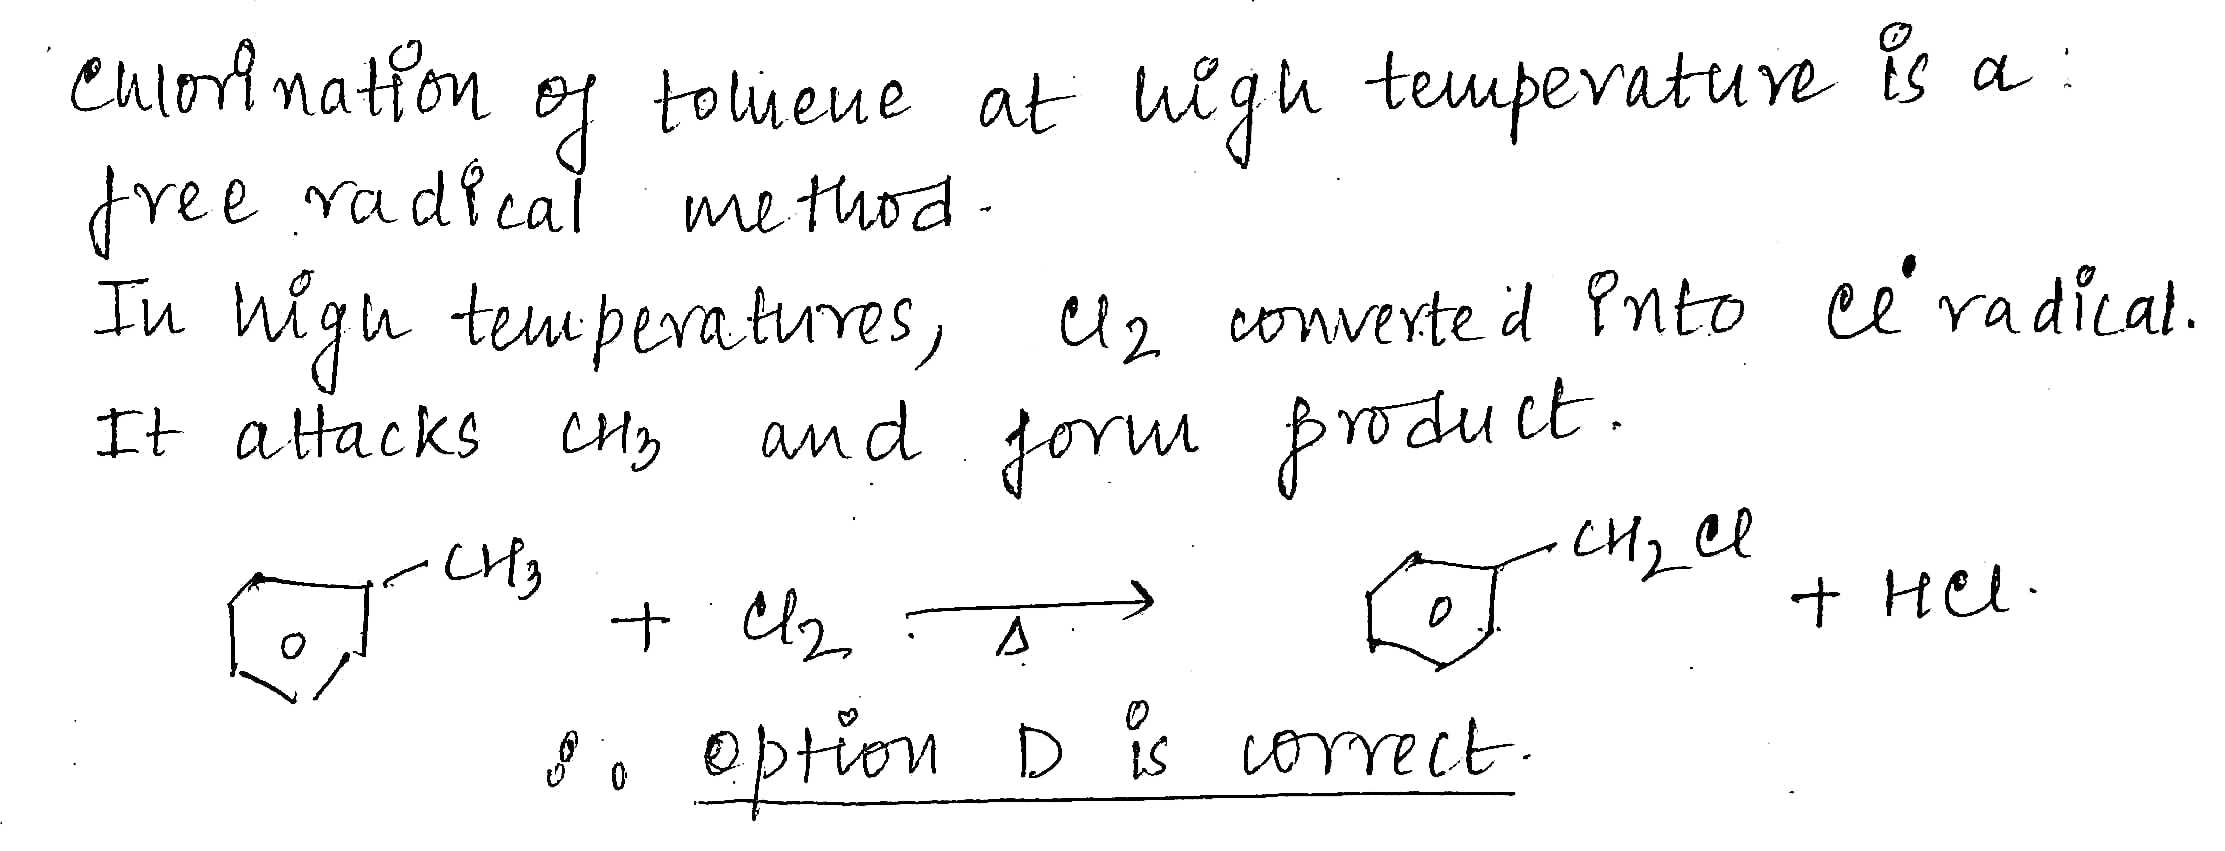 Chlorination of toluene at high temperature is a
free radical method.
In high temperatures, Cl2 converted into Cl• radical.
It attacks CH3 and form product.
CH3 + Cl2 ⟶ CH2Cl + HCl.
Δ
∴ option D is correct.